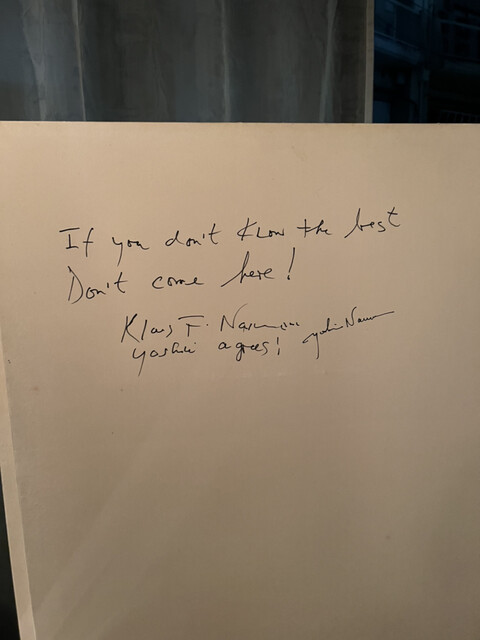 If you don't know the best
Don't come here!
Klaus F. Naumann
Yoshiki agrees!